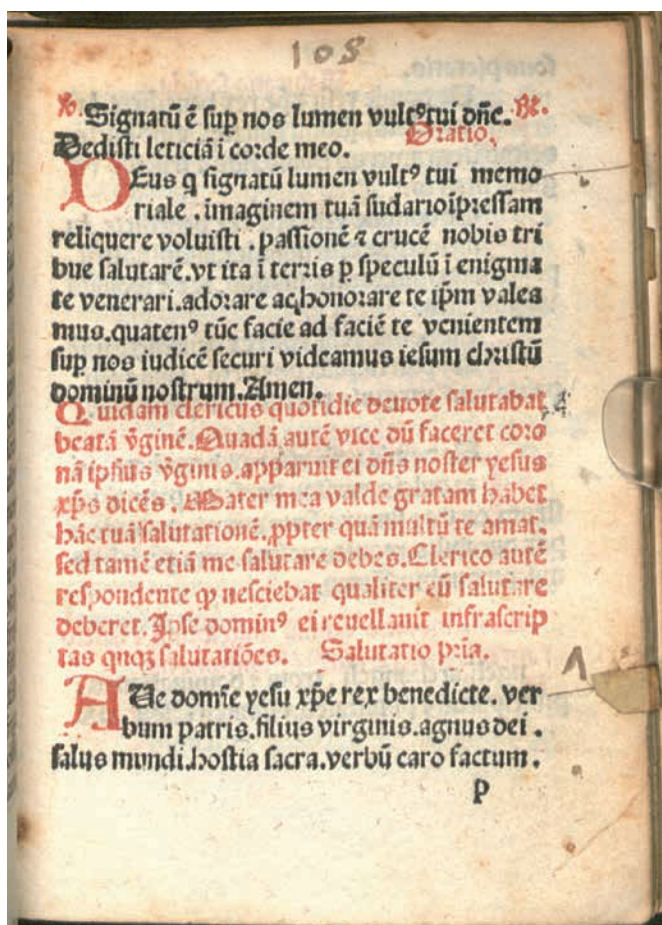 108
℣. Signatū ē sup̱ nos lumen vultꝰ tui dn̄e. ℟.
Dedisti leticiā ī corde meo. Oratio.
DEus q signatū lumen vultꝰ tui memo
riale . imaginem tuā sudario īpressam
reliquere voluisti . passionē ⁊ crucē nobis tri
bue salutarē. vt ita ī terris p speculū ī enigma
te venerari. adorare ac honorare te ip̄m valea
mus. quatenꝰ tūc facie ad faciē te venientem
sup nos iudicē securi videamus iesum christū
dominū nostrum. Amen.
Quidam clericus quotidie deuote salutabat
beatā v̄ginē. Quadā autē vice dū faceret coro
nā ipsius v̄ginis. apparuit ei dn̄s noster yesus
xp̄s dicēs . Mater mea valde gratam habet
hāc tuā salutationē. ꝓpter quā multū te amat.
sed tamē etiā me salutare debes. Clerico autē
respondente ꝙ nesciebat qualiter eū salutare
deberet. Ipse dominꝰ ei reuellauit infrascrip
tas qnqꝫ salutatiōes. Salutatio p̄ria.
1
AUe domīe yesu xp̄e rex benedicte. ver
bum patris. filius virginis. agnus dei .
salus mundi. hostia sacra. verbū caro factum .
p